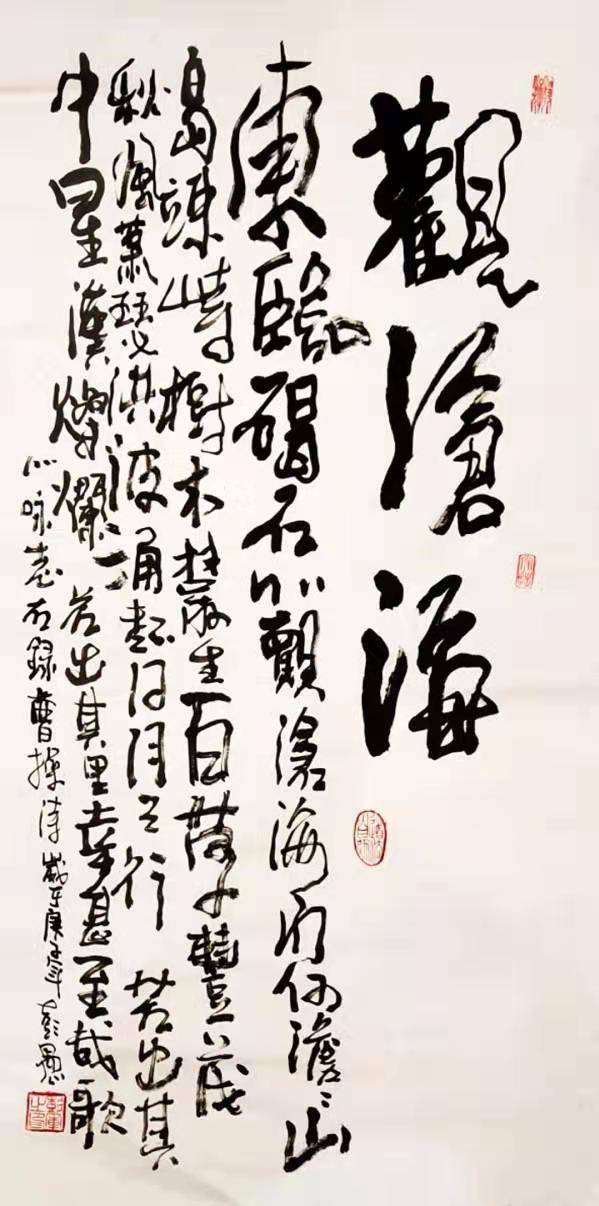 觀滄海
東臨碣石以觀滄海水何澹澹山
島竦峙樹木叢生百草豐茂
秋風蕭瑟洪波涌起日月之行若出其
中星漢燦爛若出其里幸甚至哉歌
以咏志右録曹操诗歲在庚子年彭